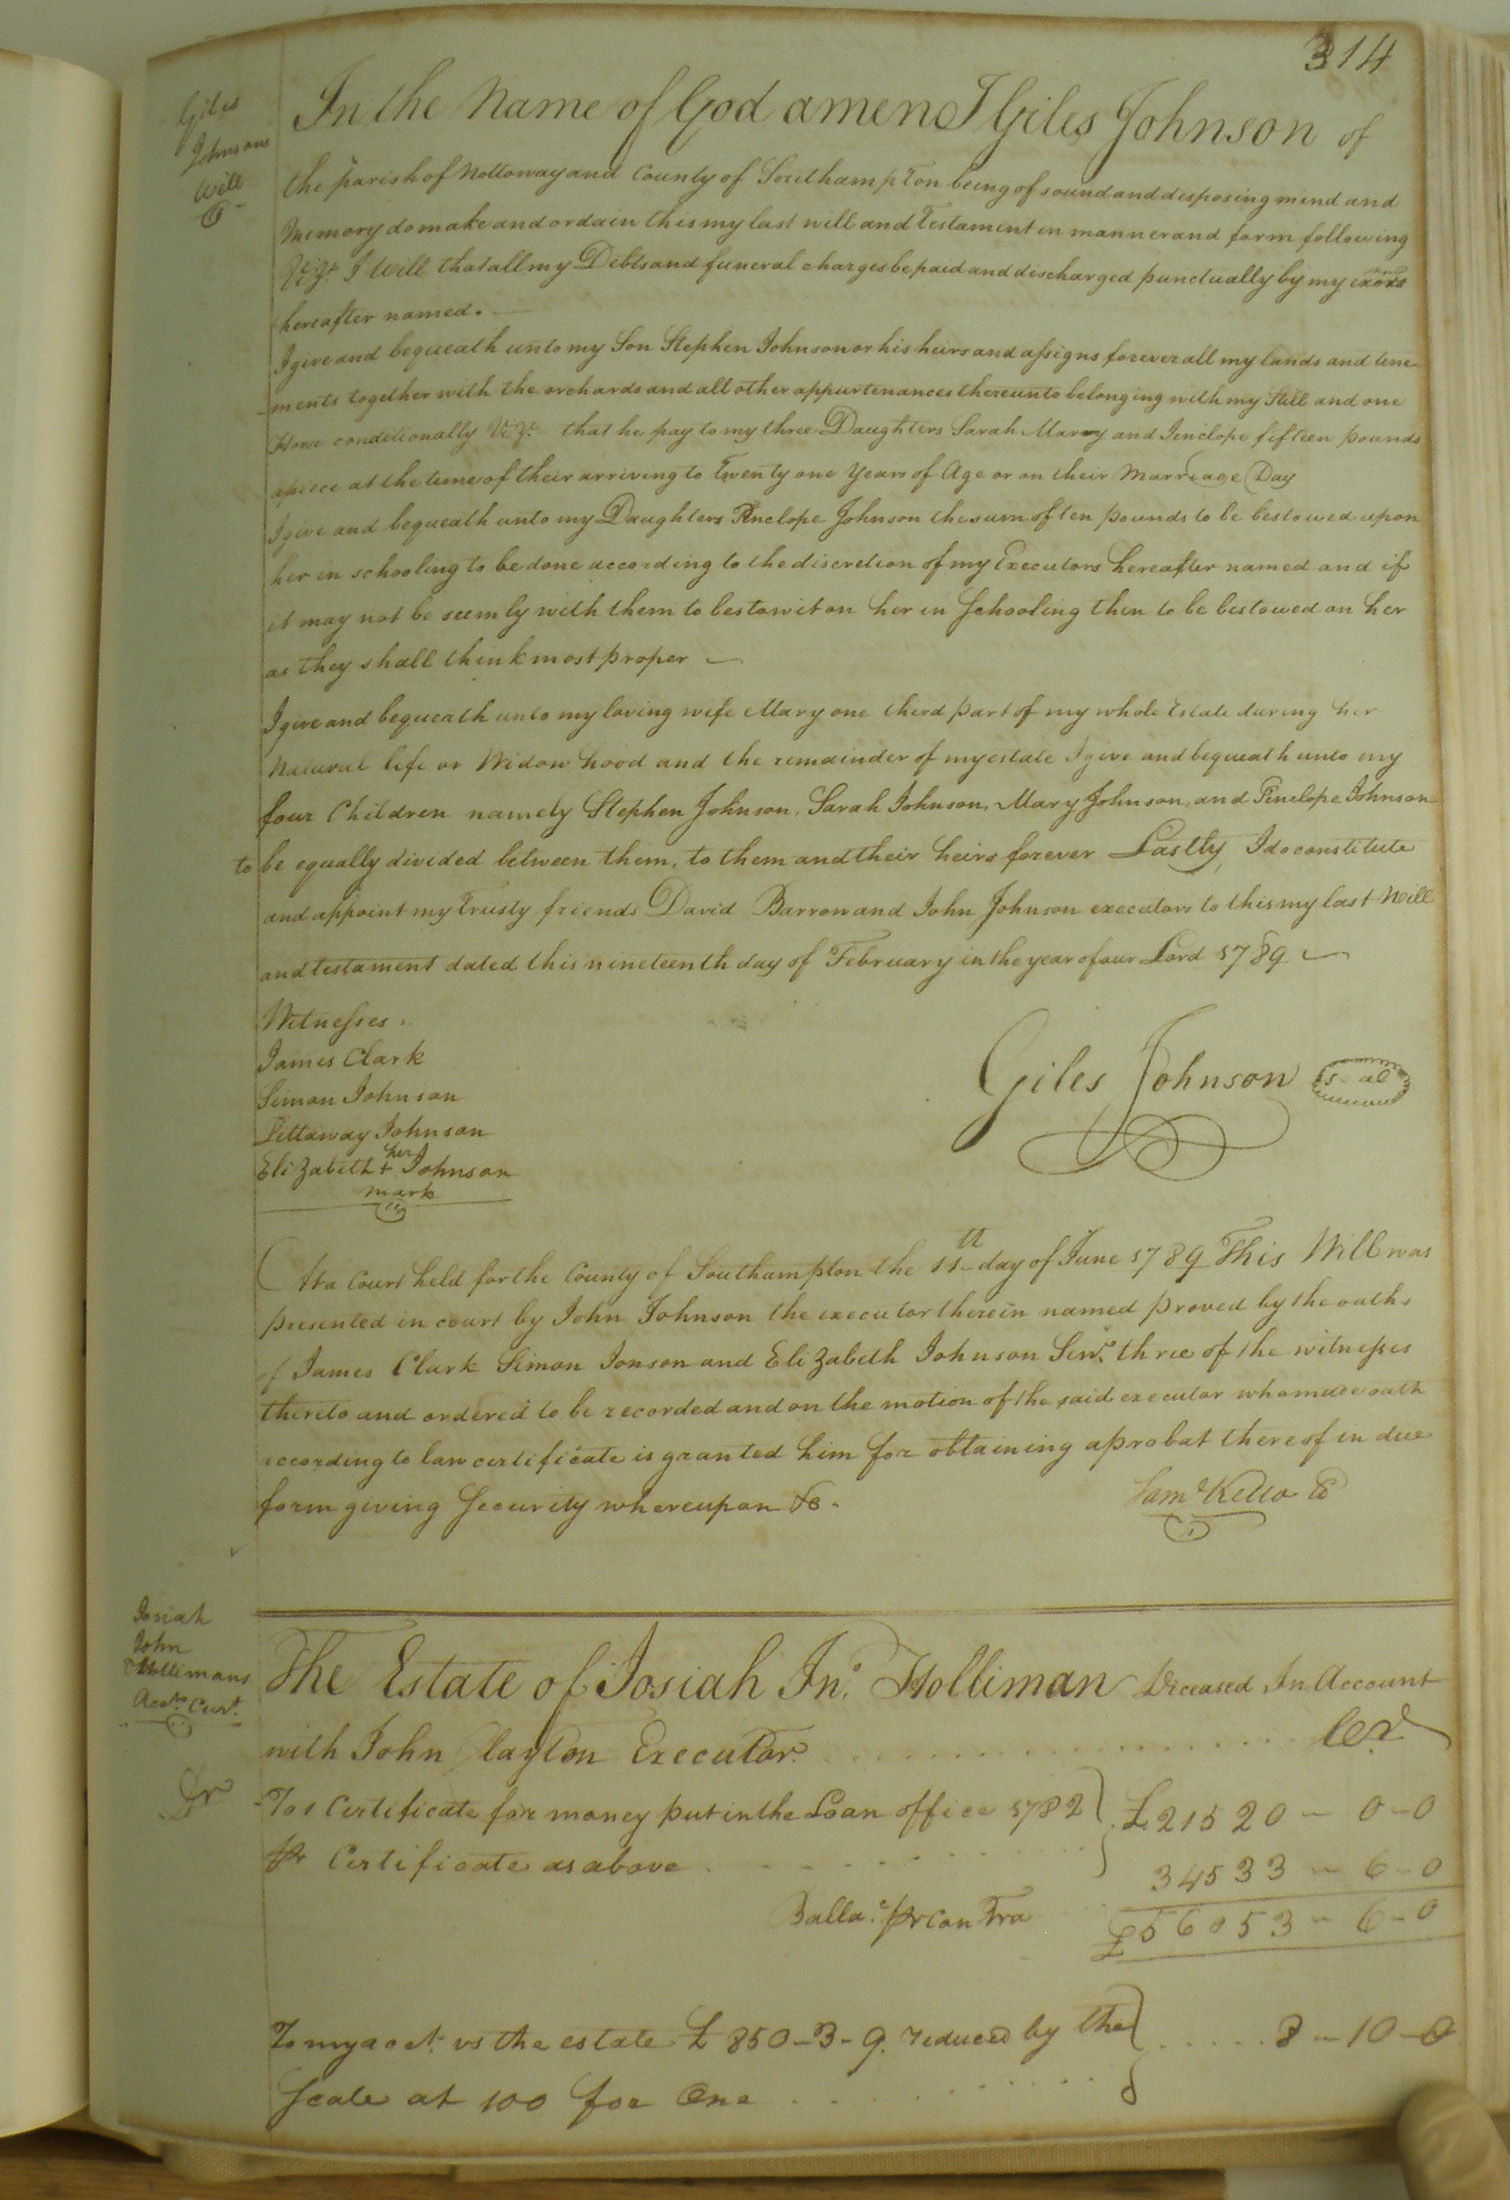 314
Giles
Johnsons
Will
In the Name of God amen I Giles Johnson of
the parish of Nottoway and County of Southampton being of sound and disposing mind and
Memory do make and ordain this my last will and Testament in manner and form following
Vizt. I Will that all my Debts and funeral charges be paid and discharged punctually by my exors
hereafter named.
I give and bequeath unto my Son Stephen Johnson or his heirs and assigns forever all my lands and tene-
-ments together with the orchards and all other appurtenances thereunto belonging with my Still and one
conditionally Vizt. that he pay to my three Daughters Sarah Marey and Penelope fifteen pounds
apiece at the time of their arriving to Twenty one Years of Age or on their Marriage Day
I give and bequeath unto my Daughters Penelope Johnson the sum of ten pounds to be bestowed upon
her in schooling to be done according to the discretion of my Executors hereafter named and if
it may not be seemly with them to bestow it on her in Schooling then to be bestowed on her
as they shall think most proper
I give and bequeath unto my loving wife Mary one third part of my whole Estate during her
Natural life or Widow hood and the remainder of my estate I give and bequeath unto my
four Children namely Stephen Johnson, Sarah Johnson, Mary Johnson, and Penelope Johnson
to be equally divided between them, to them and their heirs forever Lastly, I do constitute
and appoint my Trusty friends David Barrow and John Johnson executors to this my last Will
and testament dated this nineteenth day of February in the year of our Lord 1789
Witnesses
James Clark
Simon Johnson
Pettaway Johnson
Elizabeth her + Johnson
mark
Giles Johnson seal
At a Court held for the County of Southampton the 11th day of June 1789 This Will was
presented in court by John Johnson the executor therein named proved by the oaths
of James Clark Simon Jonson and Elizabeth Johnson Senr. three of the witnesses
thereto and ordered to be recorded and on the motion of the said executor who made oath
according to law certificate is granted him for obtaining a probat thereof in due
form giving Security whereupon &c.
Saml Kello CC
Josiah
John
Hollimans
Acct. Curt.
The Estate of Josiah Jno. Holliman Deceased In Account
with John Clayton Executor Cr
Dr
To 1 Certificate for money put in the Loan office 1782 £21520 - 0 - 0
pr Certificate as above 34533 - 6 - 0
Ballac. pr Con Tra £56053 - 6 - 0
To my acct. vs the estate £ 850-3-9. reduced by the 8 - 10 - 0
Scale at 100 for One